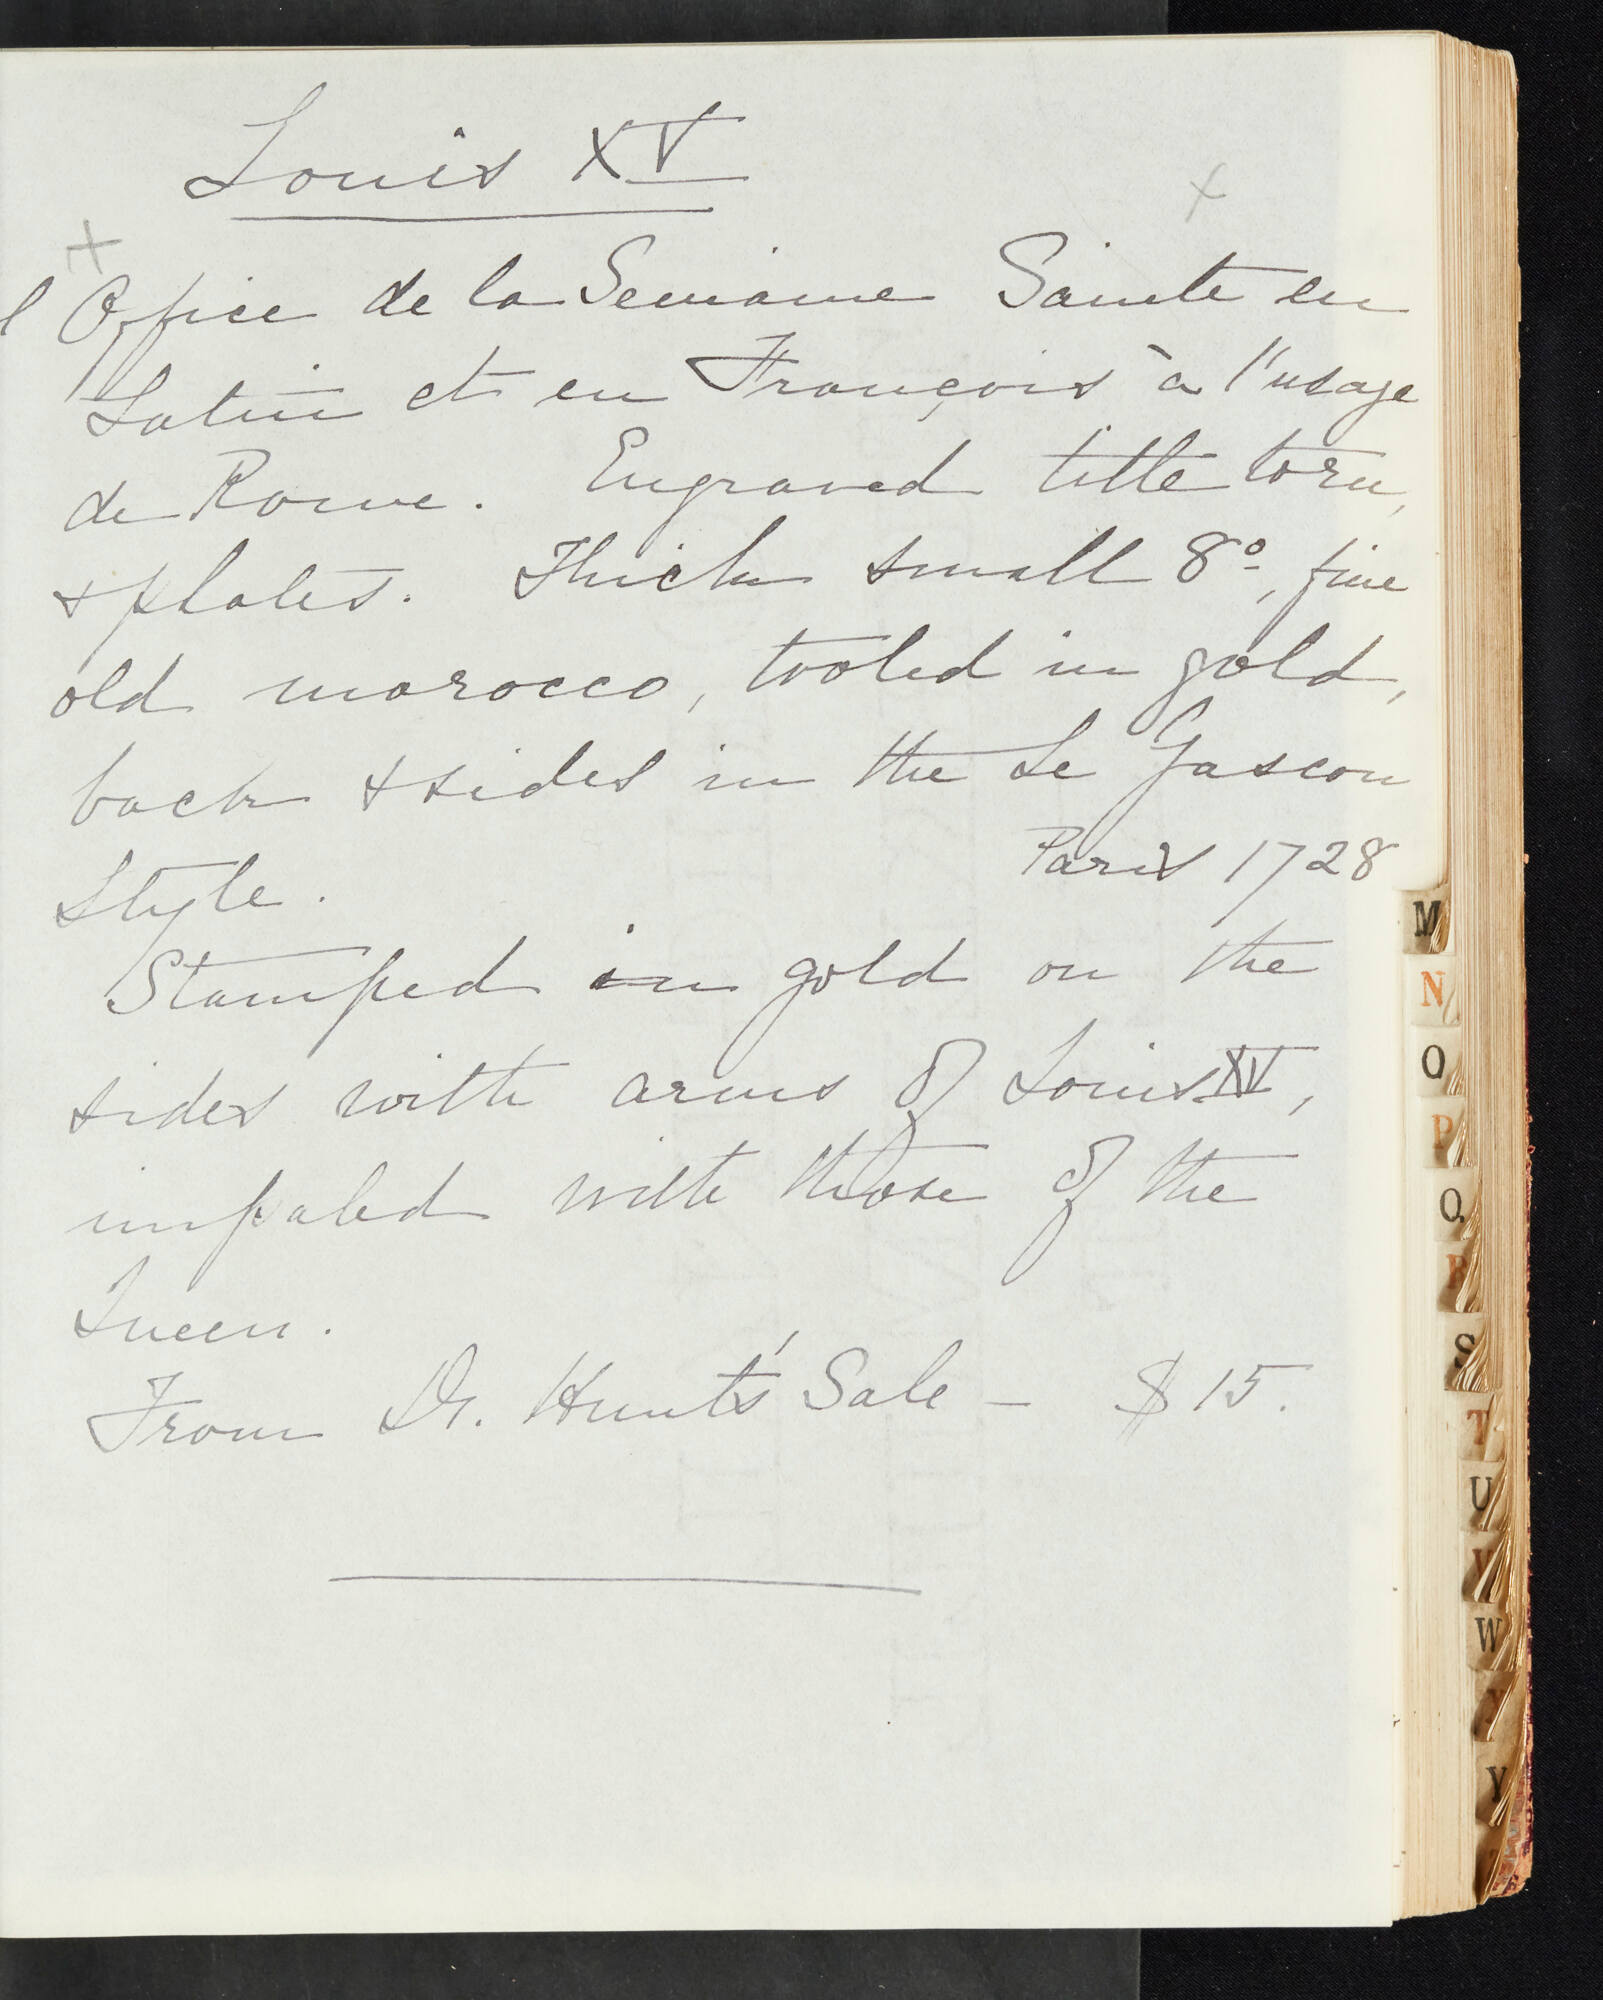 Louis XV
x
x
l'Office de la Semaine Sainte en
Latin et en François à l'usage
de Rome. Engraved title torn,
& plates. Thick small 8º, fine
old marocco, tooled in gold,
back & sides in the Le Gascon
Style. Paris 1728
Stamped in gold on the
sides with arms of Louis XV,
impaled with those of the
Queen.
From Dr. Hunt's Sale - $15.
M
N
O
P
Q
R
S
T
U
V
W
X
Y